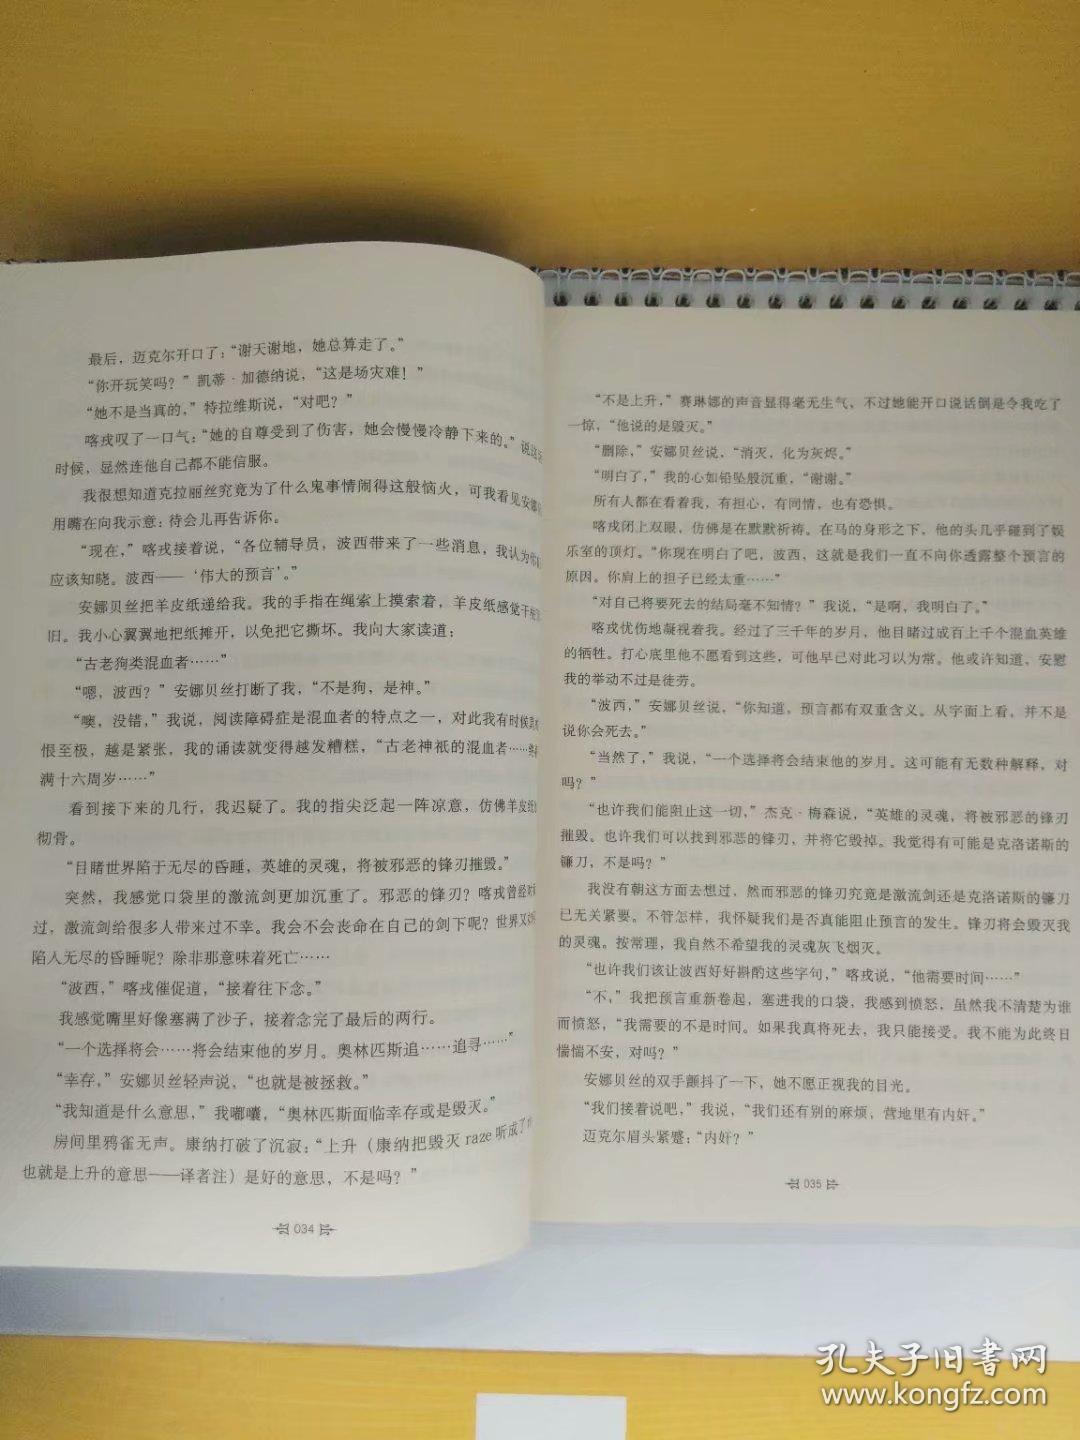 最后，迈克尔开口了：“谢天谢地，她总算走了。”
“你开玩笑吗？”凯蒂·加德纳说，“这是场灾难！”
“她不是当真的，”特拉维斯说，“对吧？”
喀戎叹了一口气：“她的自尊受到了伤害，她会慢慢冷静下来的。”说这话
时候，显然连他自己都不能信服。
我很想知道克拉丽丝究竟为了什么鬼事情闹得这般恼火，可我看见安娜
用嘴在向我示意：待会儿再告诉你。
“现在，”喀戎接着说，“各位辅导员，波西带来了一些消息，我认为你
应该知晓。波西——‘伟大的预言’。”
安娜贝丝把羊皮纸递给我。我的手指在绳索上摸索着，羊皮纸感觉干
旧。我小心翼翼地把纸摊开，以免把它撕坏。我向大家读道：
“古老狗类混血者……”
“嗯，波西？”安娜贝丝打断了我，“不是狗，是神。”
“噢，没错，”我说，阅读障碍症是混血者的特点之一，对此我有时候
恨至极，越是紧张，我的诵读就变得越发糟糕，“古老神祇的混血者……
满十六周岁……”
看到接下来的几行，我迟疑了。我的指尖泛起一阵凉意，仿佛羊皮纸
彻骨。
“目睹世界陷于无尽的昏睡，英雄的灵魂，将被邪恶的锋刃摧毁。”
突然，我感觉口袋里的激流剑更加沉重了。邪恶的锋刃？喀戎曾经
过，激流剑给很多人带来过不幸。我会不会丧命在自己的剑下呢？世界又
陷入无尽的昏睡呢？除非那意味着死亡……
“波西，”喀戎催促道，“接着往下念。”
我感觉嘴里好像塞满了沙子，接着念完了最后的两行。
“一个选择将会……将会结束他的岁月。奥林匹斯追……追寻……”
“幸存，”安娜贝丝轻声说，“也就是被拯救。”
“我知道是什么意思，”我嘟囔，“奥林匹斯面临幸存或是毁灭。”
房间里鸦雀无声。康纳打破了沉寂：“上升（康纳把毁灭raze听成了
也就是上升的意思——译者注）是好的意思，不是吗？”
034
“不是上升，”赛琳娜的声音显得毫无生气，不过她能开口说话倒是令我吃了
一惊，“他说的是毁灭。”
“删除，”安娜贝丝说，“消灭，化为灰烬。”
“明白了，”我的心如铅坠般沉重，“谢谢。”
所有人都在看着我，有担心，有同情，也有恐惧。
喀戎闭上双眼，仿佛是在默默祈祷。在马的身形之下，他的头几乎碰到了娱
乐室的顶灯。“你现在明白了吧，波西，这就是我们一直不向你透露整个预言的
原因。你肩上的担子已经太重……”
“对自己将要死去的结局毫不知情？”我说，“是啊，我明白了。”
喀戎忧伤地凝视着我。经过了三千年的岁月，他目睹过成百上千个混血英雄
的牺牲。打心底里他不愿看到这些，可他早已对此习以为常。他或许知道，安慰
我的举动不过是徒劳。
“波西，”安娜贝丝说，“你知道，预言都有双重含义。从字面上看，并不是
说你会死去。”
“当然了，”我说，“一个选择将会结束他的岁月。这可能有无数种解释，对
吗？”
“也许我们能阻止这一切，”杰克·梅森说，“英雄的灵魂，将被邪恶的锋刃
摧毁。也许我们可以找到邪恶的锋刃，并将它毁掉。我觉得有可能是克洛诺斯的
镰刀，不是吗？”
我没有朝这方面去想过，然而邪恶的锋刃究竟是激流剑还是克洛诺斯的镰刀
已无关紧要。不管怎样，我怀疑我们是否真能阻止预言的发生。锋刃将会毁灭我
的灵魂。按常理，我自然不希望我的灵魂灰飞烟灭。
“也许我们该让波西好好斟酌这些字句，”喀戎说，“他需要时间……”
“不，”我把预言重新卷起，塞进我的口袋，我感到愤怒，虽然我不清楚为谁
而愤怒，“我需要的不是时间。如果我真将死去，我只能接受。我不能为此终日
惴惴不安，对吗？”
安娜贝丝的双手颤抖了一下，她不愿正视我的目光。
“我们接着说吧，”我说，“我们还有别的麻烦，营地里有内奸。”
迈克尔眉头紧蹙：“内奸？”
035
孔夫子旧书网
www.kongfz.com